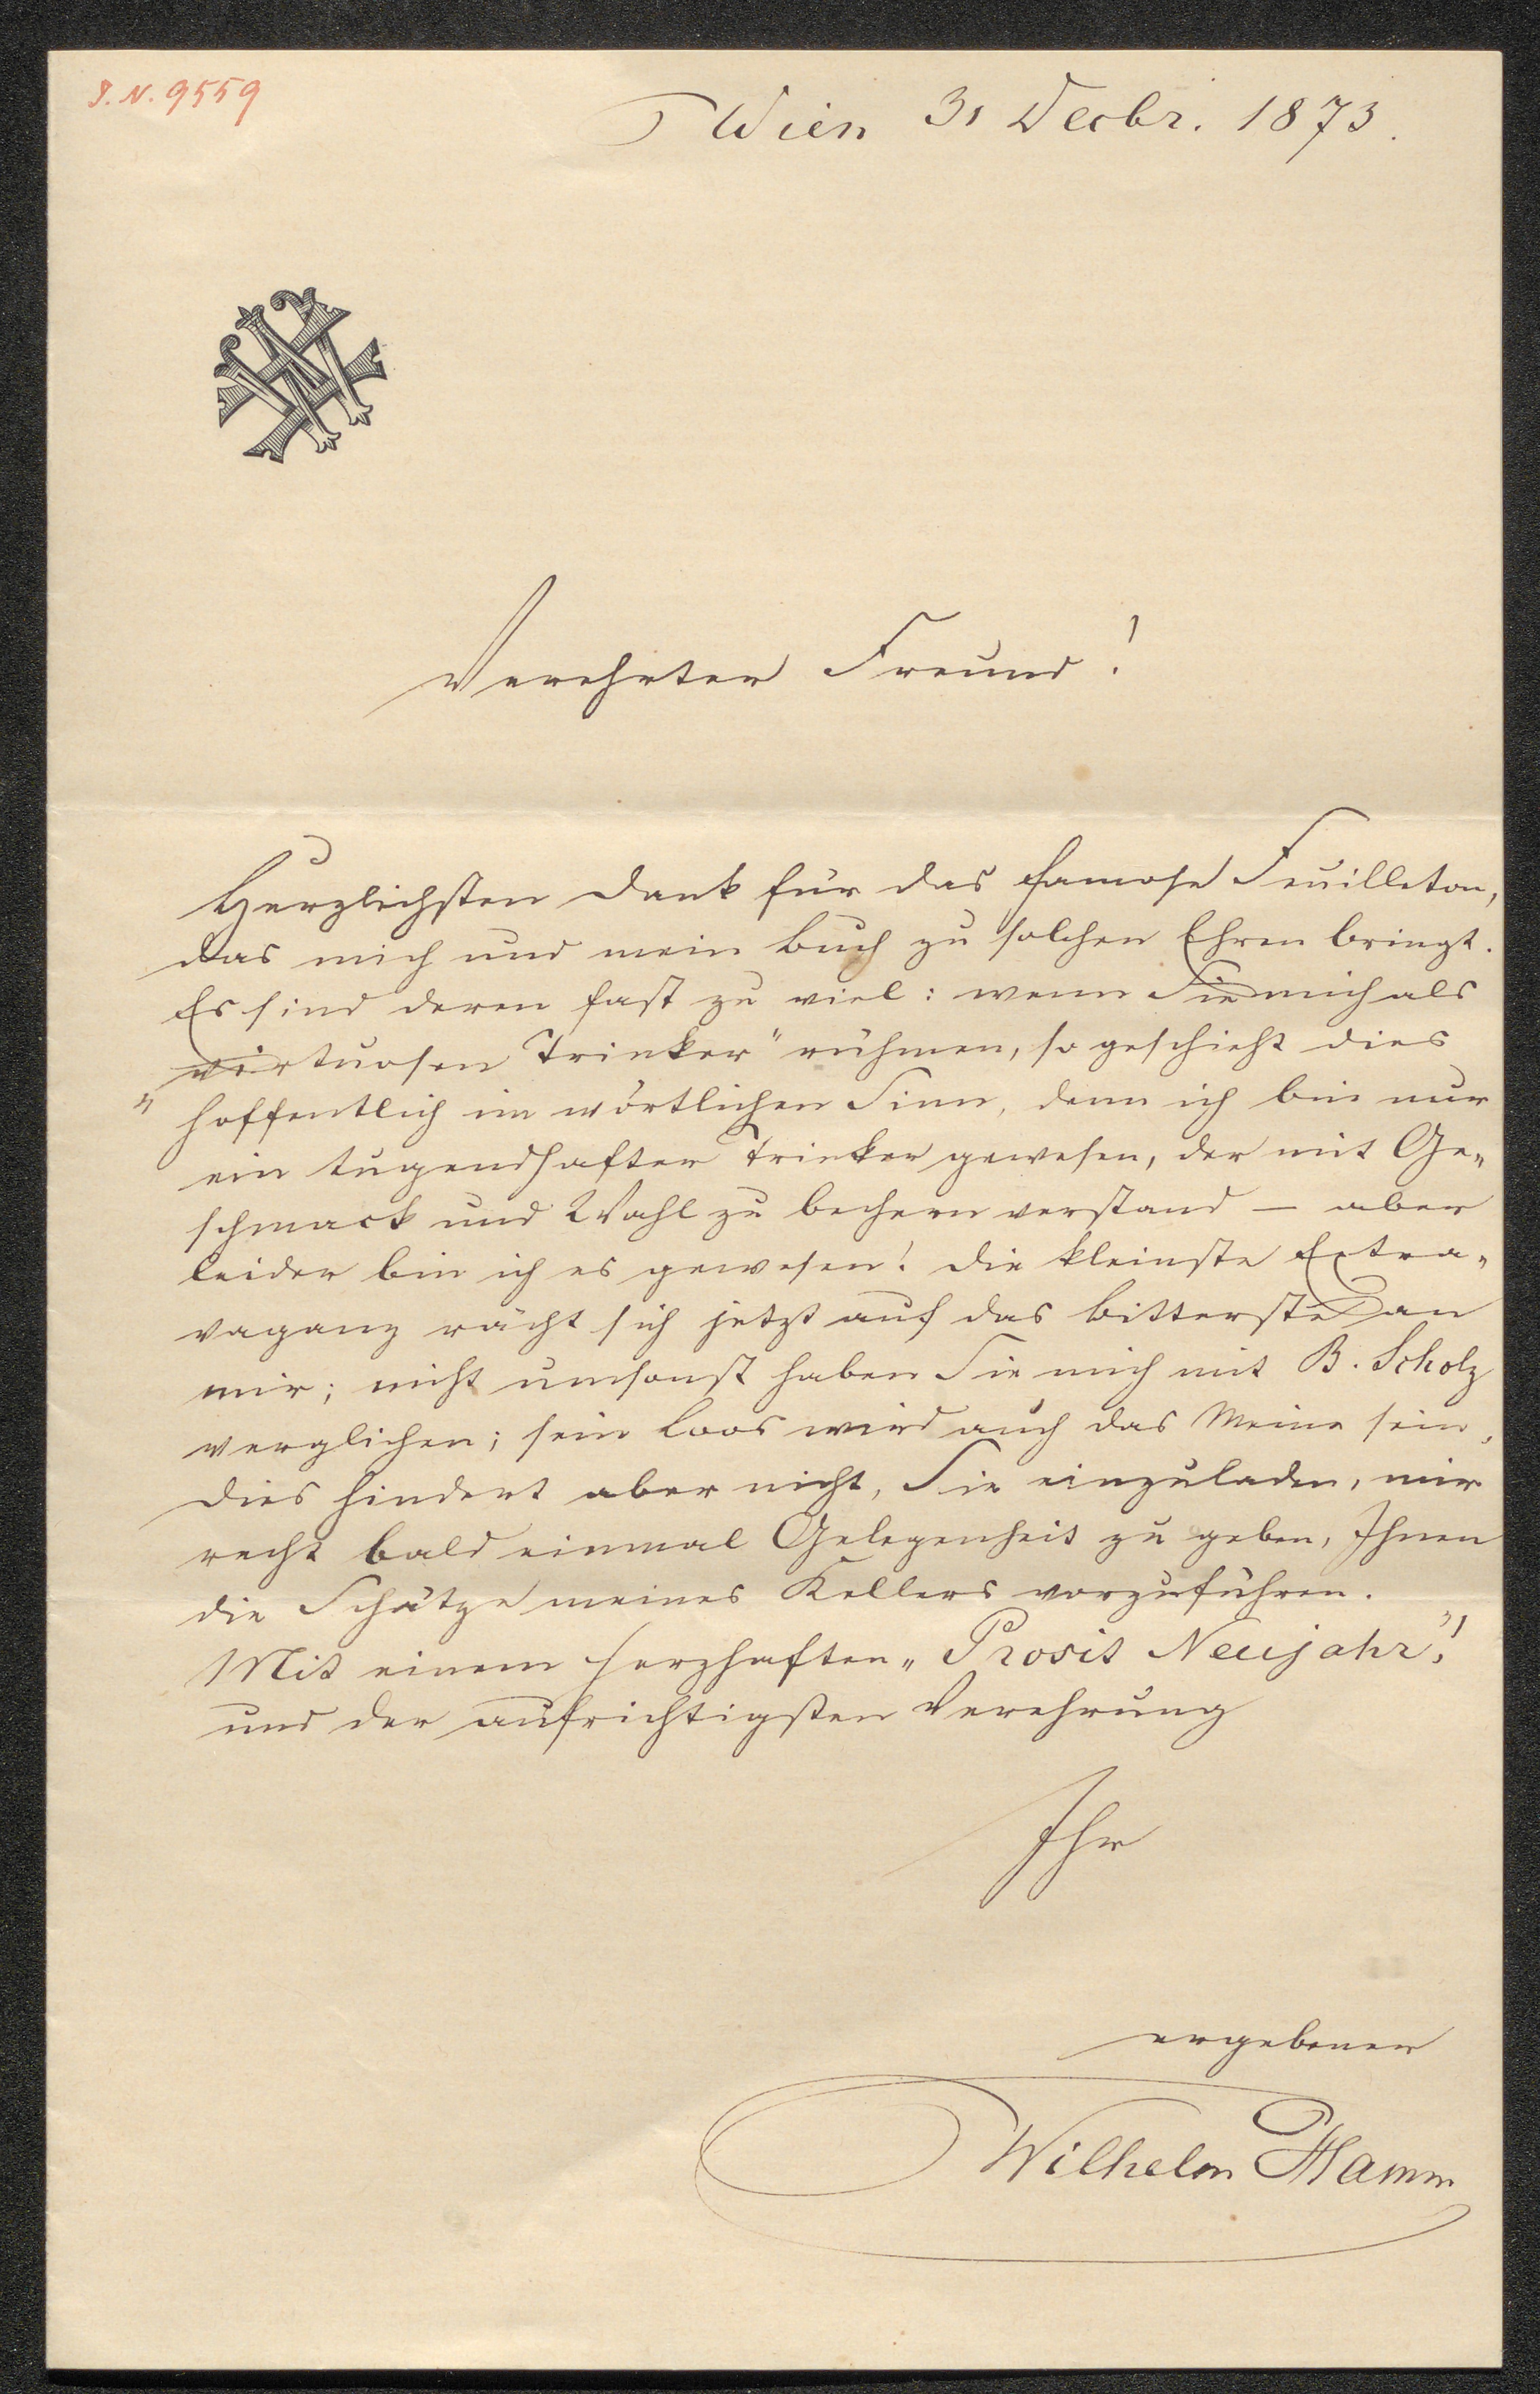 J. N. 9559
Wien 31 Decbr. 1873.
Verehrter Freund!
Herzlichsten Dank für das famose Feuilleton,
das mich und mein Buch zu solchen Ehren bringt.
Es sind deren fast zu viel: wenn Sie mich als
„virtuosen Trinker“ rühmen, so geschieht dies
hoffentlich im wörtlichen Sinn, denn ich bin nur
ein tugendhafter Trinker gewesen, der mit Ge„
schmack und Wahl zu bechern verstand — aber
leider bin ich es gewesen! Die kleinste Extra„
vaganz rächt sich jetzt auf das bitterste an
mir; nicht umsonst haben Sie mich mit B. Scholz
verglichen; sein Loos wird auch das Meine sein,
dies hindert aber nicht, Sie einzuladen, mir
recht bald einmal Gelegenheit zu geben, Ihnen
die Schätze meines Kellers vorzuführen.
Mit einem herzhaften „Prosit Neujahr“!
und der aufrichtigsten Verehrung
Ihr
ergebener
Wilhelm Hamm